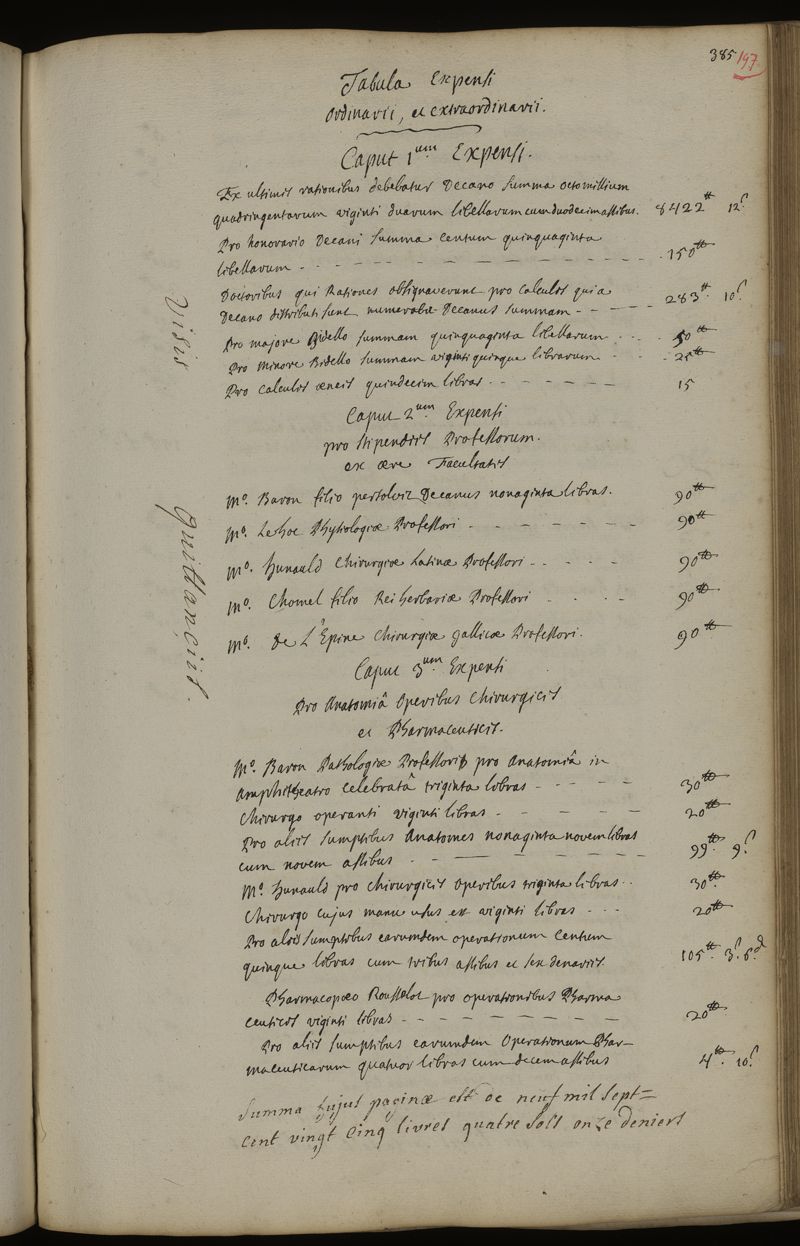 385 197
Tabula Expensi
ordinarii, et extraordinarii.
Caput 1um Expensi.
Ex ultimis rationibus debebatur Decano summa octo millium
quadringentarum viginti duarum libellarum cum duodecim assibus. 8422tt 12s
Pro honorario Decani summa centum quinquaginta
libellarum - - - - - - - - - - - 150tt
Doctoribus qui Rationes obsignaverunt pro calculis qui a
Decano distributi sunt numerabit Decanus summam - - - - - 283tt 10s
Pro majore Bidello summam quinquaginta libellarum . . . . 50tt
Pro Minore Bidello summam viginti quinque librarum - - - - 25tt
Pro calculis æneis quindecim libras - - - - - - - 15
Caput 2um Expensi
pro stipendiis Professorum.
ex ære Facultatis
Mo. Baron filio persolvit Decanus nonaginta libras. 90tt
Mo. Lehoc Physiologiæ Professori - - - - - - - 90tt
Mo. Hunauld Chirurgiæ Latinæ Professori - - - - - 90tt
Mo. Chomel filio Rei herbariæ Professori - - - - 90tt
Mo. De L'Epine Chirurgiæ gallicæ Professori. 90tt
Caput 3um Expensi
Pro Anatomiâ Operibus Chirurgicis
et Pharmaceuticis.
Mo. Baron Pathologiæ Professori pro Anatomiâ in
Amphitheatro celebratâ triginta libras - - - - - 30tt
Chirurgo operanti viginti libras - - - - - 20tt
Pro aliis sumptibus Anatomes nonaginta novem libras
cum novem assibus - - - - - - - - - 99tt 9s
Mo. Hunauld pro Chirurgicis operibus triginta libras . . 30tt
Chirurgo cujus manu usus est viginti libras - - - 20tt
Pro aliis sumptibus earumdem operationum centum
quinque libras cum tribus assibus et sex denariis. 105tt 3s 6d
Pharmacopæo Rousselot pro operationibus Pharma
ceuticis viginti libras - - - - - - - - - 20tt
Pro aliis sumptibus earumdem Operationum Phar-
maceuticarum quatuor libras cum decem assibus 4tt 10s
Summa hujus paginæ est de neuf mil sept=
cent vingt cinq livres quatre sols onze deniers
Visis
quittanciis.